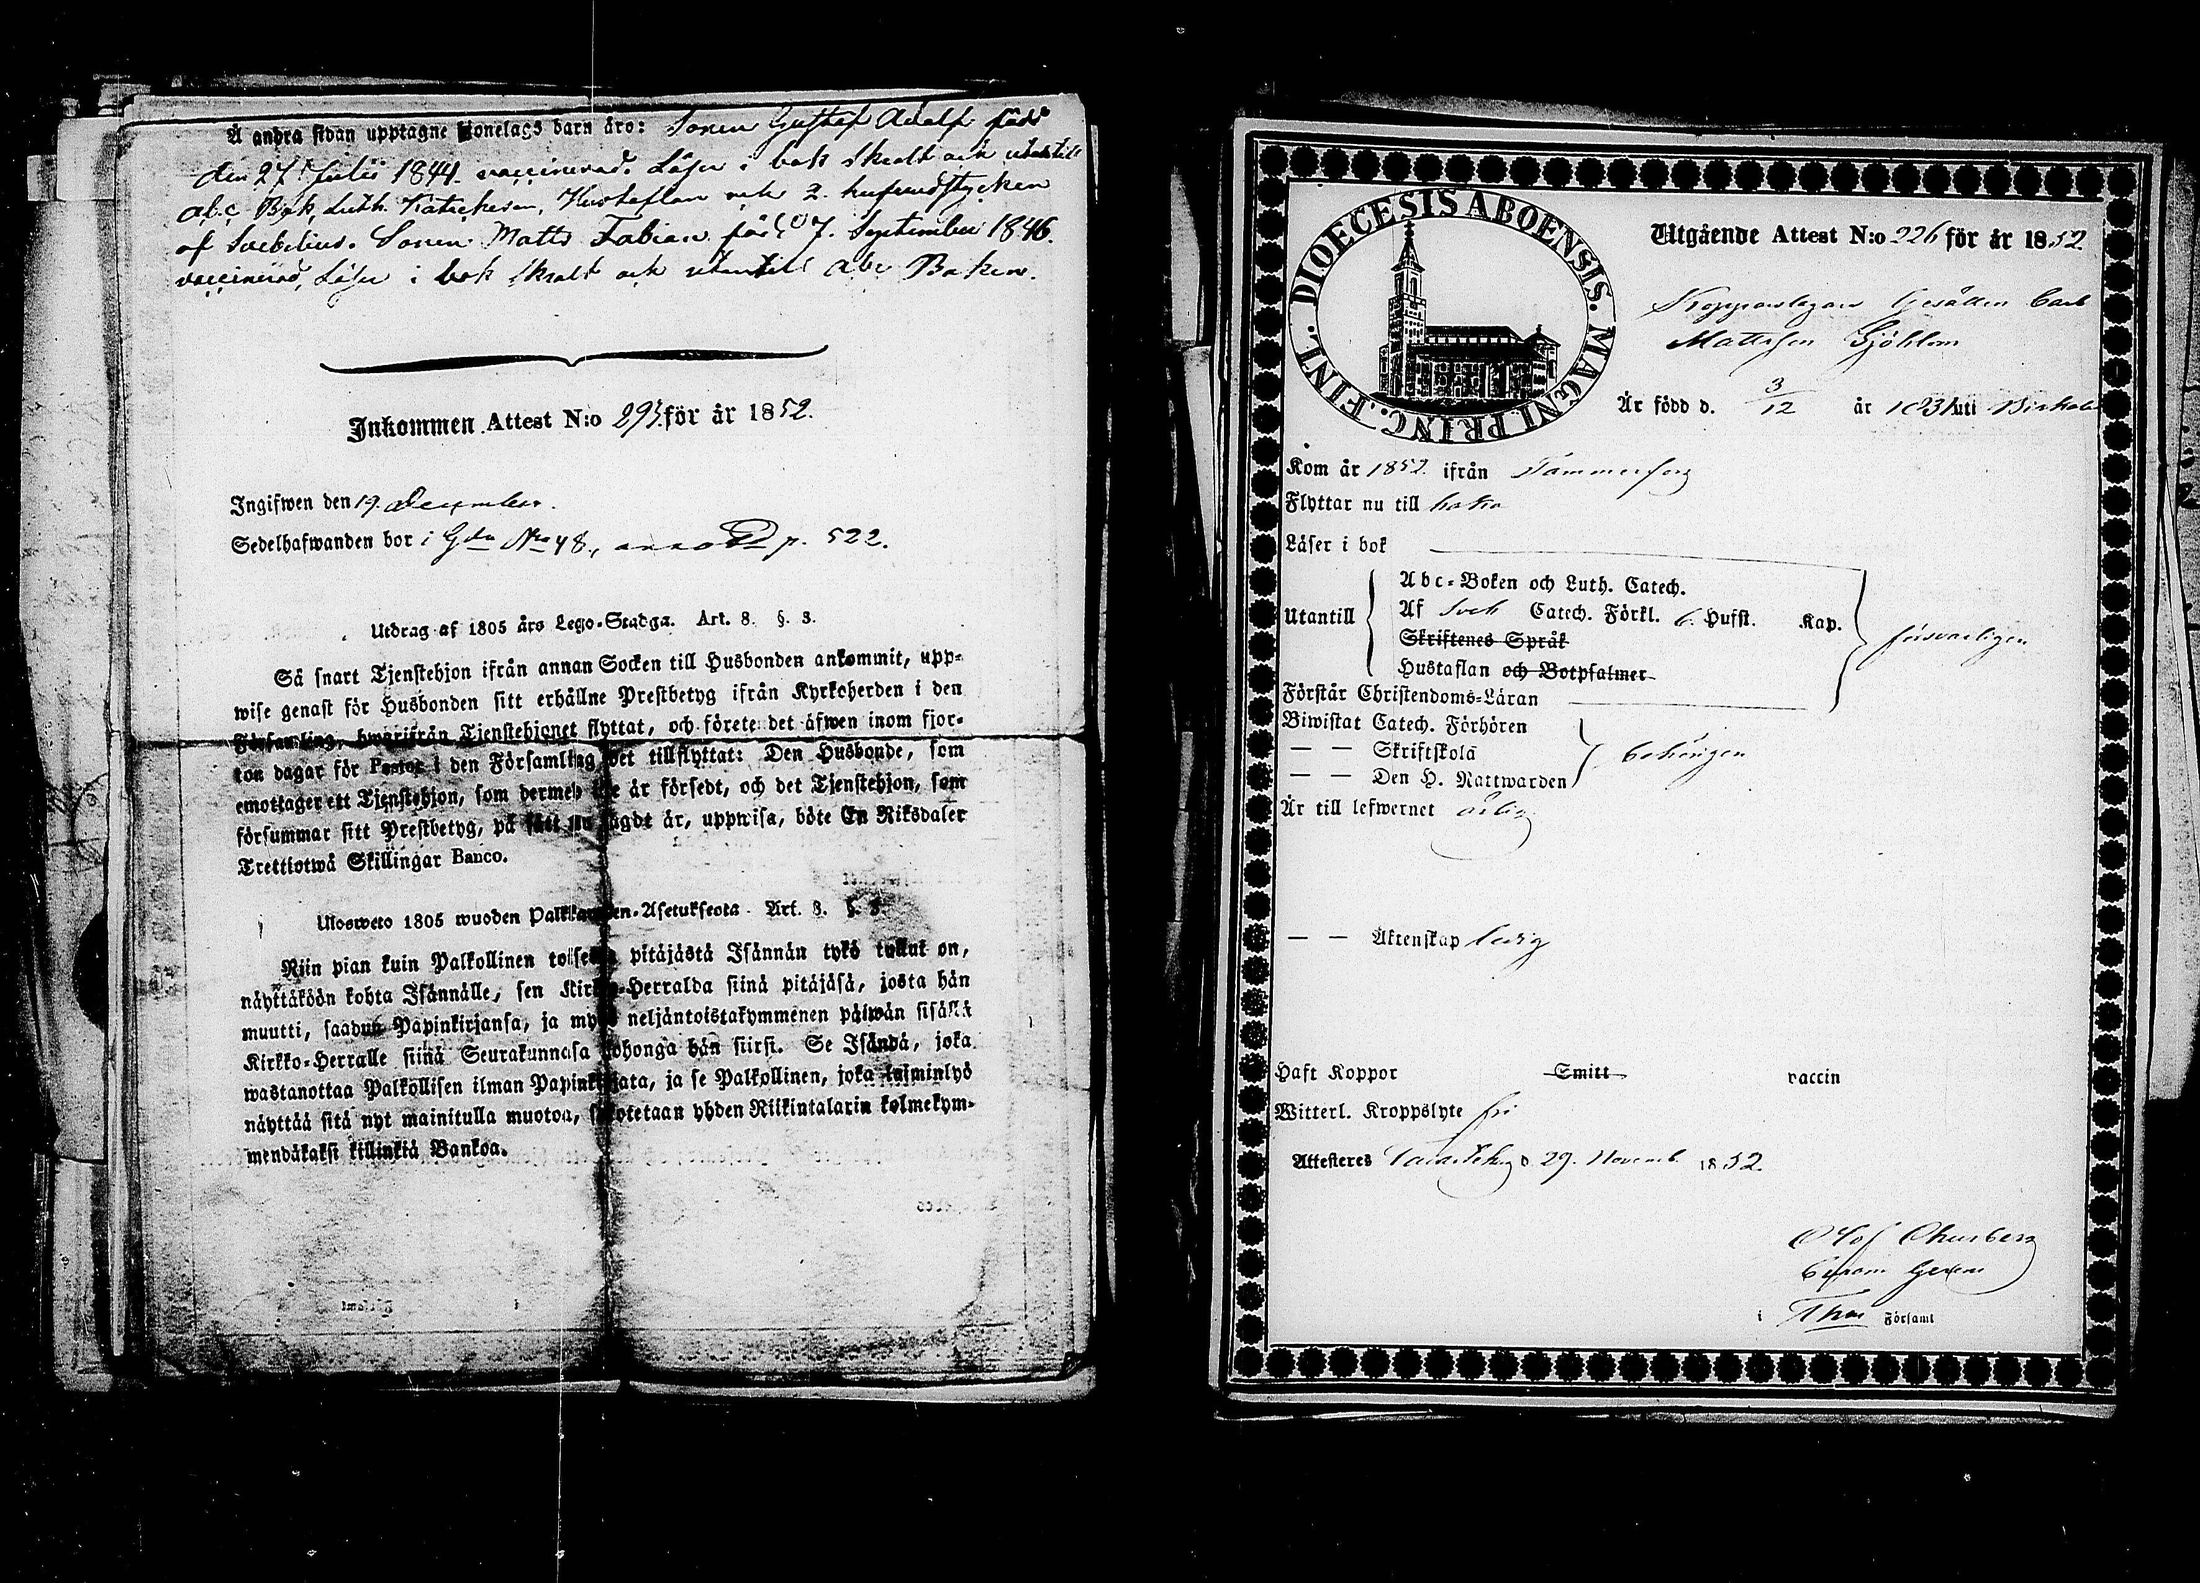 Å andra sidan upptagne Hjonelags barn äro: Sonen Gustaf Adolf född
den 27 Julii 1844. vaccinerad. Läser i bok skralt och utantill
abc Bok, Luth. Katechesen, Hustaflan och 2. hufvudstycken
af Svebelius. Sonen Matts Fabian född 7. September 1846.
vaccinerad, Läser i bok skralt och utantill abc Boken.
Inkommen Attest N:o 293 för år 1852.
Ingifwen den 19. December.
Sedelhafwanden bor i Gdn No 48., p. 522.
Utdrag af 1805 års Lego-Stadga. Art. 8. §. 3.
Så snart Tjenstehjon ifrån annan Socken till Husbonden ankommit, upp-
wise genast för Husbonden sitt erhållne Prestbetyg ifrån Kyrkoherden i den
Församling, hwarifrån Tjenstehjonet flyttat, och förete det äfwen inom fjor-
ton dagar för Pastor i den Församling det tillflyttat: Den Husbonde, som
emottager ett Tjenstehjon, som dermed icke är försedt, och det Tjenstehjon, som
försummar sitt Prestbetyg, på sätt nu sagdt är, uppwisa, böte En Riksdaler
Trettiotwå Skillingar Banco.
Ulosweto 1805 wuoden Palkkawäen-Asetuksesta. Art. 8. §. 3.
Niin pian kuin Palkollinen toisesta pitäjästä Isännän tykö tullut on,
näyttäköön kohta Isännälle, sen Kirkko-Herralda siinä pitäjäsä, josta hän
muutti, saadun Papinkirjansa, ja myös neljäntoistakymmenen päiwän sisällä
Kirkko-Herralle siinä Seurakunnasa johonga hän siirsi. Se Isändä, joka
wastanottaa Palkollisen ilman Papinkirjata, ja se Palkollinen, joka laiminlyö
näyttää sitä nyt mainitulla muotoa, sakotetaan yhden Riikintalarin kolmekym-
mendäkaksi killinkiä Bankoa.
DIOECESIS ABOENSIS. MAGNI PRINC. FINL.
Utgående Attest N:o 226 för år 1852
Kopparslagare Gesällen Carl
Mattsson Sjöblom
Är född d. 3/12 år 1831 uti Birkala
Kom år 1852 ifrån Tammerfors
Flyttar nu till
Läser i bok
Utantill
Abc-Boken och Luth. Catech.
Af Sveb Catech. Förkl. 6. Hufst. Kap.
Skriftenes Språk
Hustaflan och Botpsalmer
försvarligen
Förstår Christendoms-Läran
Biwistat Catech. Förhören
— — Skriftskola
— — Den H. Nattwarden
behörigen
Är till lefwernet ärlig
— — Äktenskap ledig
Haft Koppor Smitt vaccin
Witterl. Kroppslyte fri
Attesteres Tavastehus d 29. Novemb. 1852.
Olof
i Församl